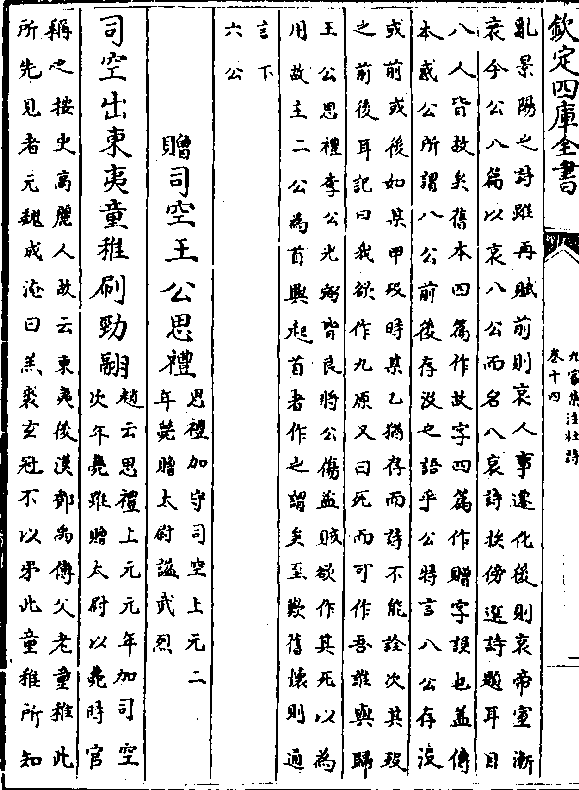 欽定四庫全書
九家集注杜詩
卷十四
一
亂景陽之詩雖再賦前則哀人事遷化後則哀帝室漸
衰今公八篇以哀八公而名八哀詩挾傍選詩題耳目
八人皆故矣舊本四篇作故字四篇作贈字誤也蓋傳
本惑公所謂八公前後存没也語乎公特言八公存没
或前或後如某甲殁時某乙猶存而詩不能詮次其殁
之前後耳記曰我欲作九原又曰死而可作吾誰與歸
王公思禮李公光弼皆良將公傷盗賊欲作其死以為
用故主二公為首興起首者作之謂矣至歎舊懷則通
言下
六公
贈司空王公思禮
思禮加守司空上元二
年薨贈太尉諡武烈
司空出東夷童稚刷勁翮
趙云思禮上元元年加司空
次年薨雖贈太尉以薨時官
稱之按史高麗人故云東夷後漢鄧禹傳父老童稚此
所先見者元魏成淹曰羔裘玄冠不以弔此童稚所知